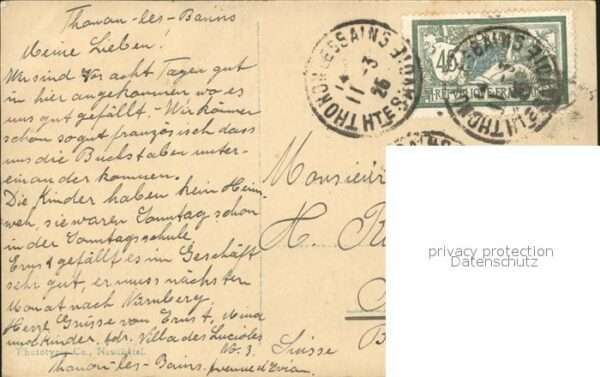 Thonon-les-Bains
Meine Lieben!
Wir sind vor acht Tagen gut
in hier angekommen wo es
uns gut gefällt. Wir können
schon so gut französisch dass
uns die Buchstaben unter-
einander kommen.
Die Kinder haben kein Heim-
weh, sie waren Sonntag schon
in der Sonntagsschule
Ernst gefällt es im Geschäft
sehr gut, er muss nächsten
Monat nach Nürnberg.
Herzl Grüsse von Ernst,
und Kinder, Adr. Villa des Lucioles
No. 3.
Thonon-les-Bains. Avenue d'Evian
Phototypie Co., Neuchâtel.
THONON-LES-BAINS
11 -3
25
HTE SAVOIE
45
REPUBLIQUE FRANÇAISE
Monsieur
H.
Suisse
privacy protection
Datenschutz